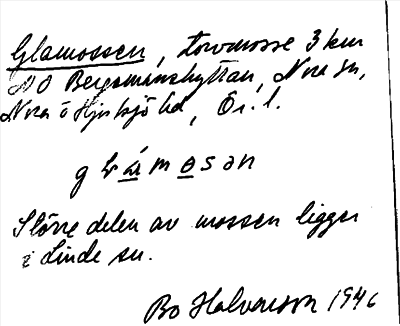 Glamossen, torvmosse 3 km
NO Bergsmanshyttan, Nora sn,
Nora o Hjulsjö hd, Ör. l.
g l a m o s ə n
Större delen av mossen ligger
i Linde sn.
Bo Halvarsson 1946